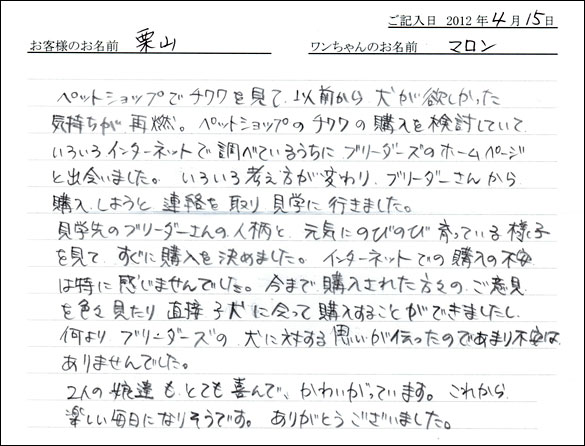 ご記入日 2012年4月15日
お客様のお名前 栗山 ワンちゃんのお名前 マロン
ペットショップでチワワを見て、以前から犬が欲しかった
気持ちが再燃。ペットショップのチワワの購入を検討していて
いろいろインターネットで調べているうちにブリーダーズのホームページ
と出会いました。いろいろ考え方が変わり、ブリーダーさんから
購入しようと連絡を取り見学に行きました。
見学先のブリーダーさんの人柄と、元気にのびのび育っている様子
を見て、すぐに購入を決めました。インターネットでの購入の不安
は特に感じませんでした。今まで購入された方々のご意見
を色々見たり直接子犬に会って購入することができましたし
何よりブリーダーズの犬に対する思いが伝ったのであまり不安は
ありませんでした。
2人の娘達もとても喜んで、かわいがっています。これから
楽しい毎日になりそうです。ありがとうございました。